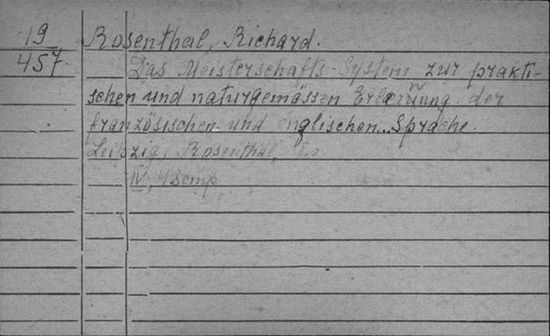 19
457
Rosenthal, Richard.
Das Meisterschafts-System zur prakti-
schen und naturgemässen Erlernung der
französischen und englischen Sprache.
Leipzig, Rosenthal,
IV,